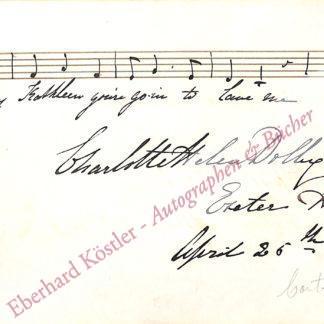 Kathleen you're goin to leave me
Charlotte Helen Dolby
Exeter
April 25th
Eberhard Köstler - Autographen & Bücher